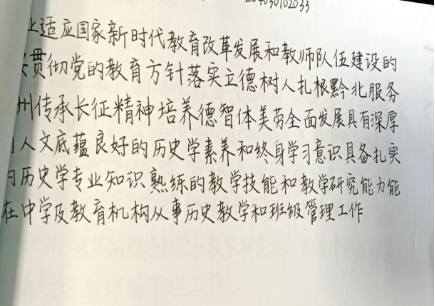 04030102033
业适应国家新时代教育改革发展和教师队伍建设的
贯彻党的教育方针落实立德树人扎根黔北服务
州传承长征精神培养德智体美劳全面发展具有深厚
人文底蕴良好的历史学素养和终身学习意识具备扎实
的历史学专业知识熟练的教学技能和教学研究能力能
在中学及教育机构从事历史教学和班级管理工作